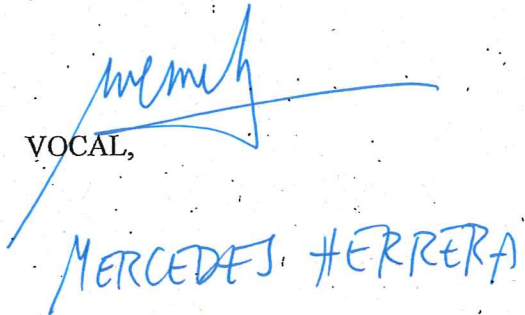 VOCAL,
MERCEDES HERRERA